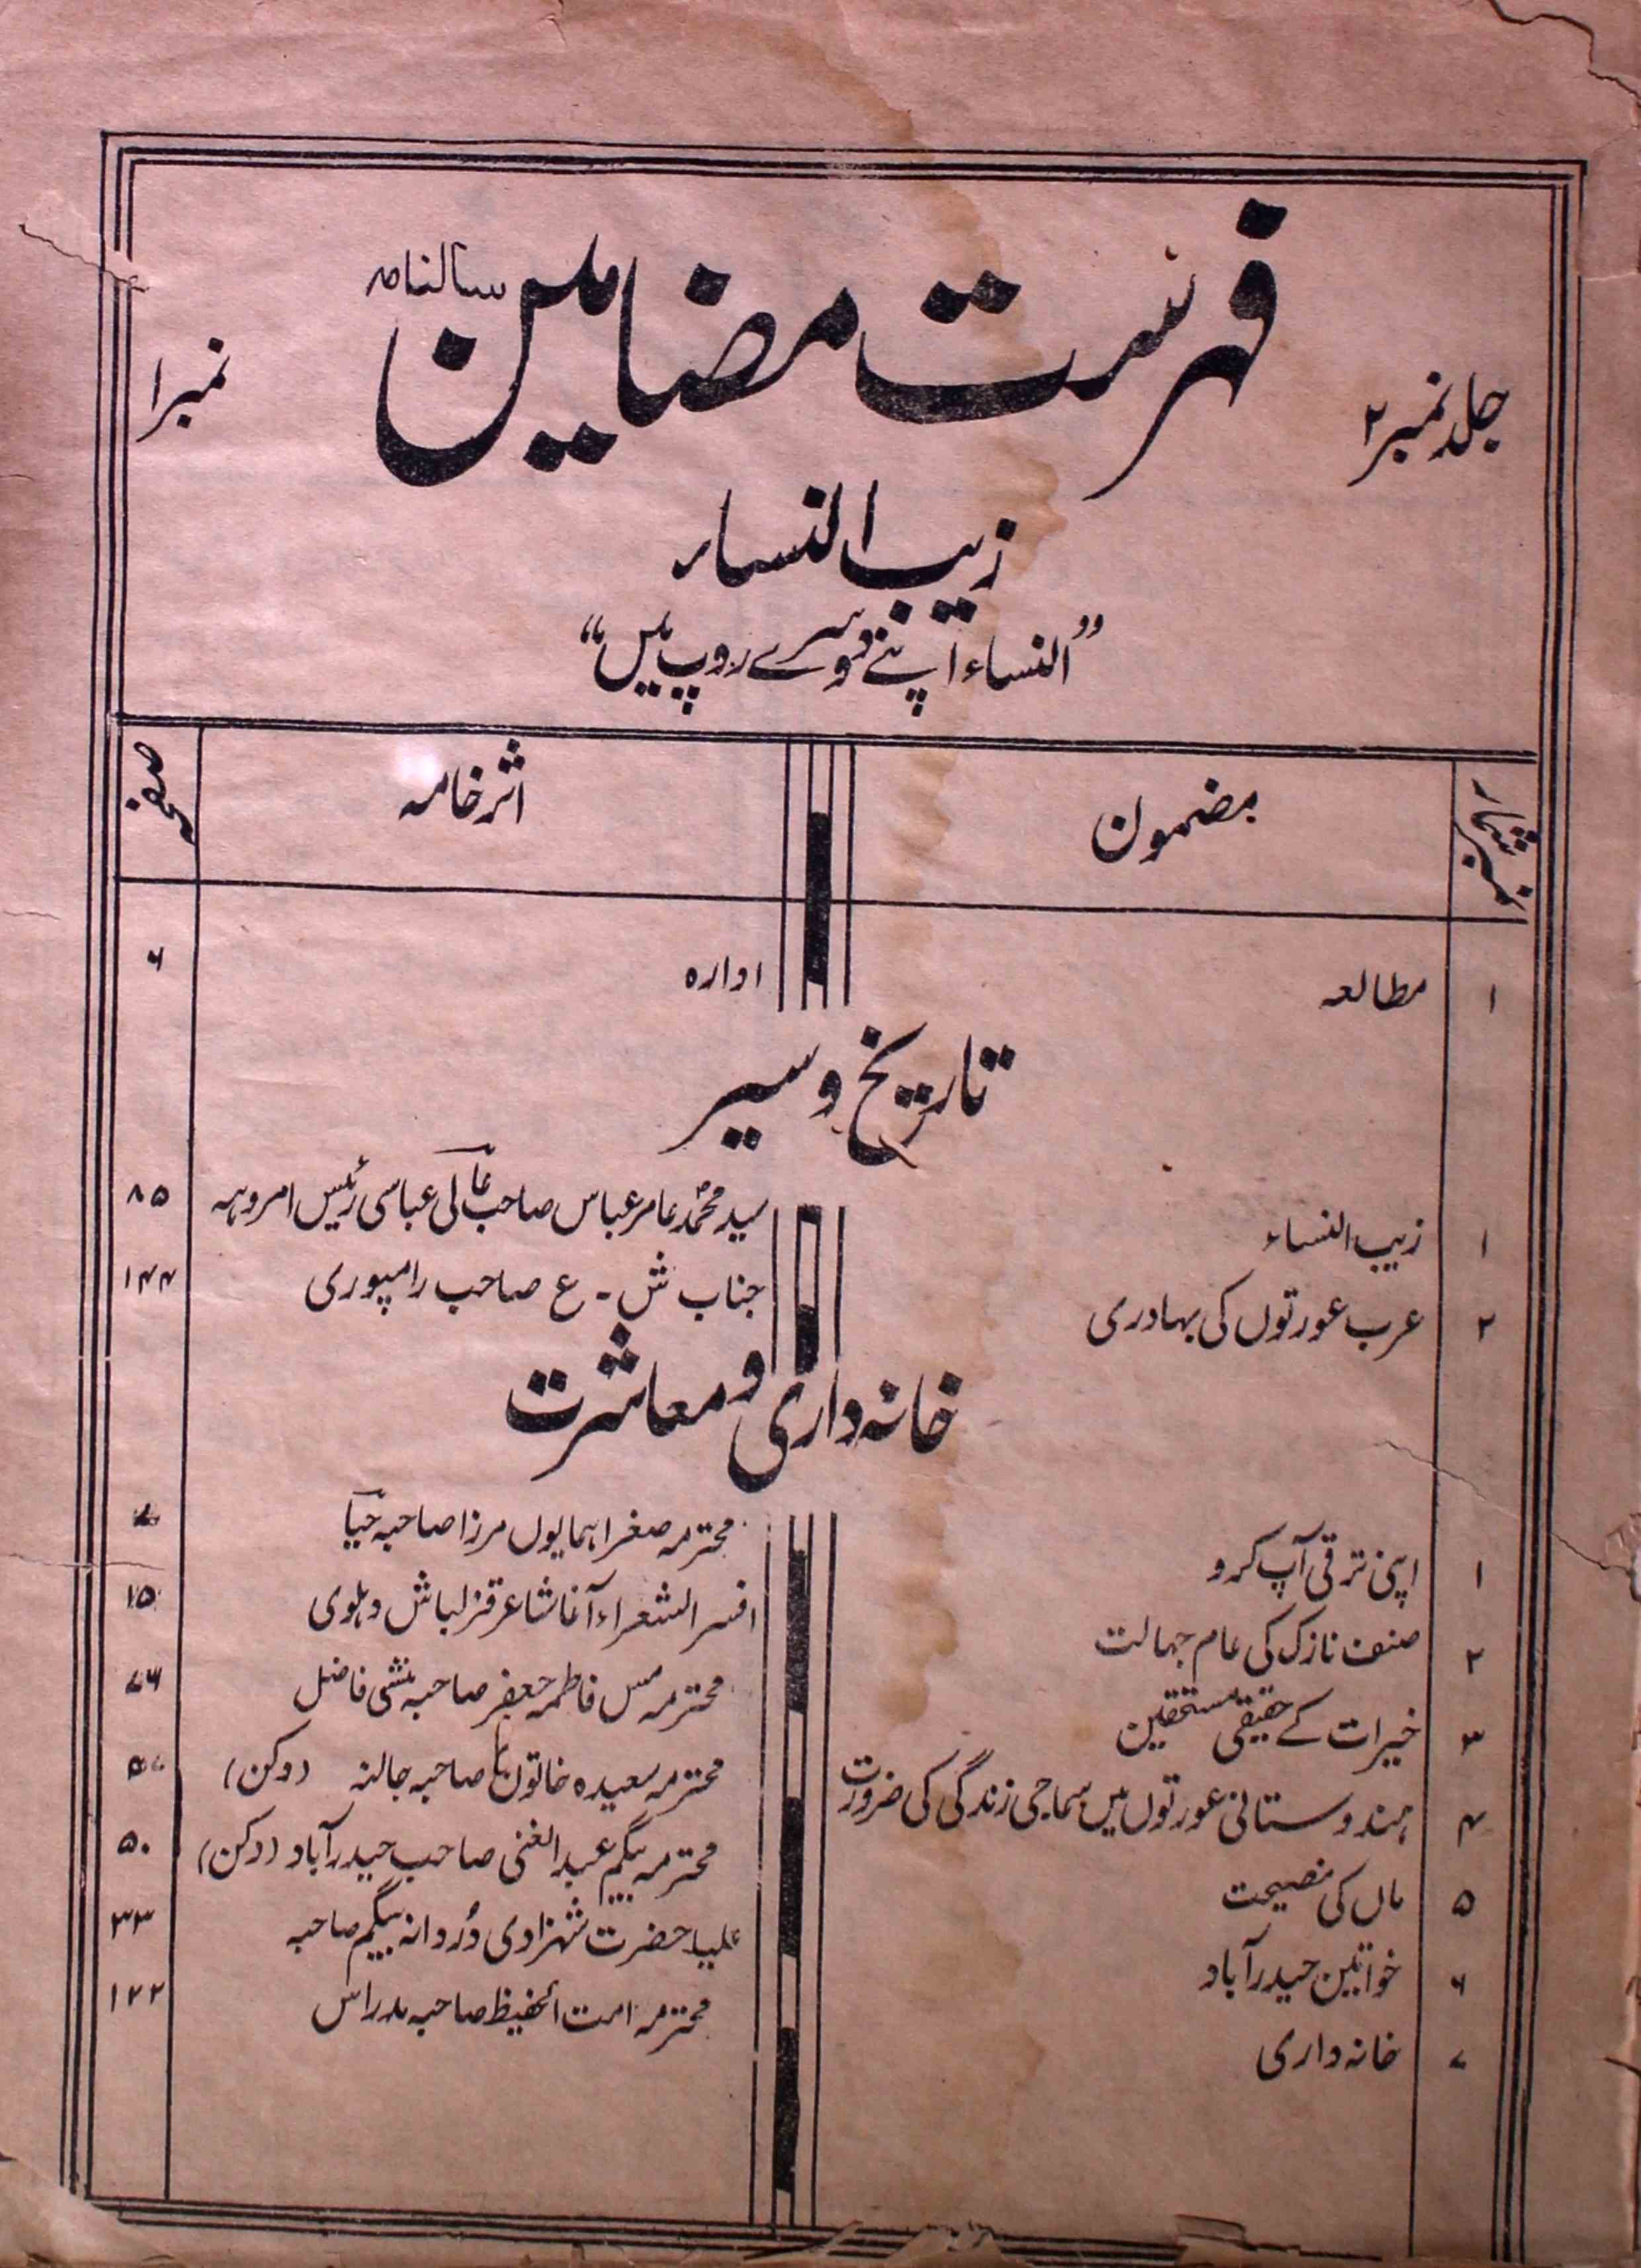 فہرست مضامین سالنامہ
جلد نمبر ۲
نمبر ۱
زیب النساء
”النساء اپنے دوسرے روپ میں“
نمبر شمار مضمون اثر خامہ صفحہ
۱ مطالعہ ادارہ ۶
تاریخ و سیر
۱ زیب النساء سید محمد عامر عباس صاحب عالی عباسی رئیس امروہہ ۸۵
۲ عرب عورتوں کی بہادری جناب ش - ع صاحب رامپوری ۱۴۴
خانہ داری و معاشرت
۱ اپنی ترقی آپ کرو محترمہ صغرا ہمایوں مرزا صاحبہ حیا ۷
۲ صنف نازک کی عام جہالت افسر الشعراء آغا شاعر قزلباش دہلوی ۱۵
۳ خیرات کے حقیقی مستحقین محترمہ مس فاطمہ جعفر صاحبہ منشی فاضل ۷۶
۴ ہندوستانی عورتوں میں سماجی زندگی کی ضرورت محترمہ سعیدہ خاتون صاحبہ جالنہ (دکن) ۵۷
۵ ماں کی نصیحت محترمہ بیگم عبد الغنی صاحب حیدرآباد (دکن) ۵۰
۶ خواتین حیدرآباد علیا حضرت شہزادی دُردانہ بیگم صاحبہ ۳۳
۷ خانہ داری محترمہ امت الحفیظ صاحبہ مدراس ۱۲۲